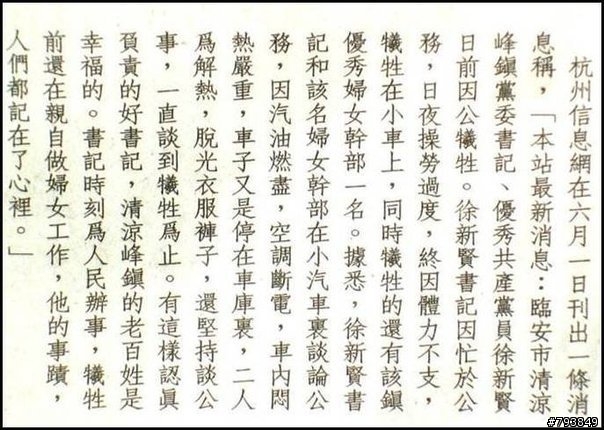 杭州信息網在六月一日刊出一條消
息稱，「本站最新消息：臨安市清涼
峰鎮黨委書記、優秀共產黨員徐新賢
日前因公犧牲。徐新賢書記因忙於公
務，日夜操勞過度，終因體力不支，
犧牲在小車上，同時犧牲的還有該鎮
優秀婦女幹部一名。據悉，徐新賢書
記和該名婦女幹部在小汽車裏談論公
務，因汽油燃盡，空調斷電，車內悶
熱嚴重，車子又是停在車庫裏，二人
爲解熱，脫光衣服褲子，還堅持談公
事，一直談到犧牲爲止。有這樣認眞
負責的好書記，清涼峰鎮的老百姓是
幸福的。書記時刻爲人民辦事，犧牲
前還在親自做婦女工作，他的事蹟，
人們都記在了心裡。」
#793849